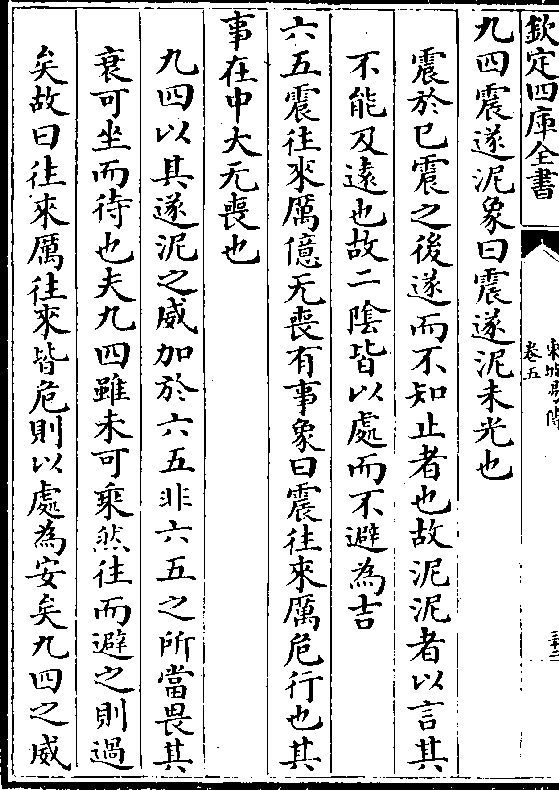 欽定四庫全書
卷五
九四震遂泥象曰震遂泥未光也
震於已震之後遂而不知止者也故泥泥者以言其
不能及遠也故二陰皆以處而不避為吉
六五震往來厲億无喪有事象曰震往來厲危行也其
事在中大无喪也
九四以其遂泥之威加於六五非六五之所當畏其
衰可坐而待也夫九四雖未可乘然往而避之則過
矣故曰往來厲往來皆危則以處為安矣九四之威